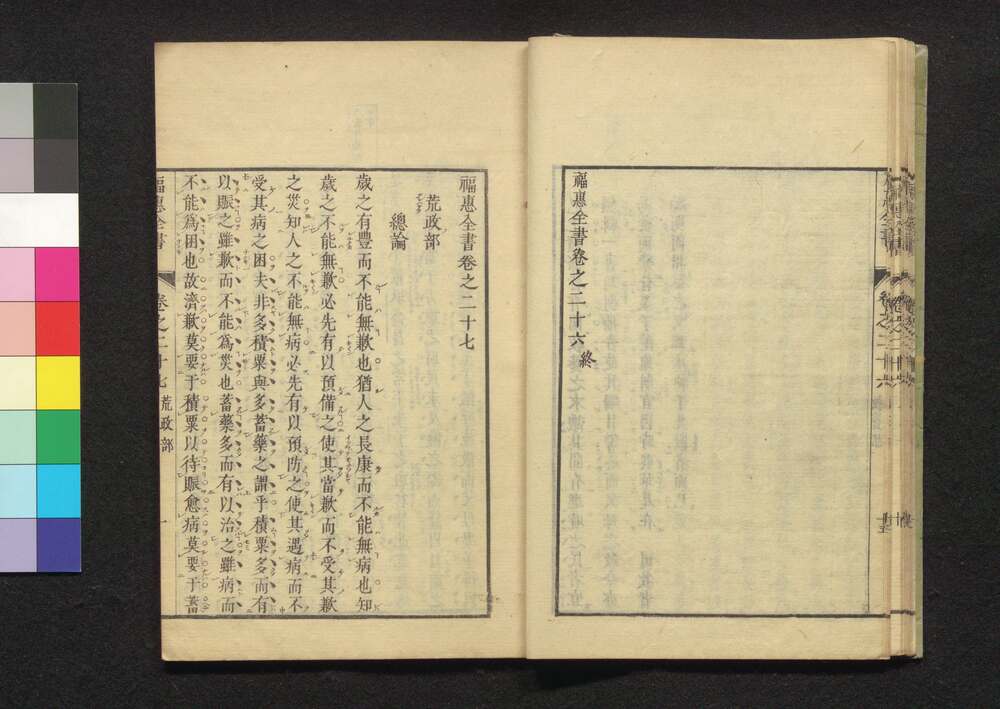 福惠全書卷之二十六終
福惠全書卷之二十七
荒政部
總論
歲之有豐而不能無歉也猶人之長康而不能無病也知
歲之不能無歉必先有以預備之使其當歉而不受其歉
之災知人之不能無病必先有以預防之使其遇病而不
受其病之困夫非多積粟與多蓄藥之謂乎積粟多而有
以賑之雖歉而不能為災也蓄藥多而有以治之雖病而
不能為困也故濟歉莫要于積粟以待賑愈病莫要于蓄
福惠全書 卷之二十七 荒政部 一